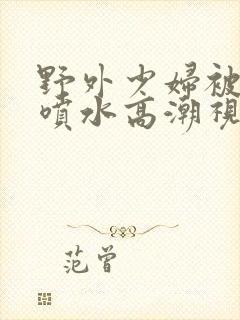 野外少婦被
噴水高潮視
范曾